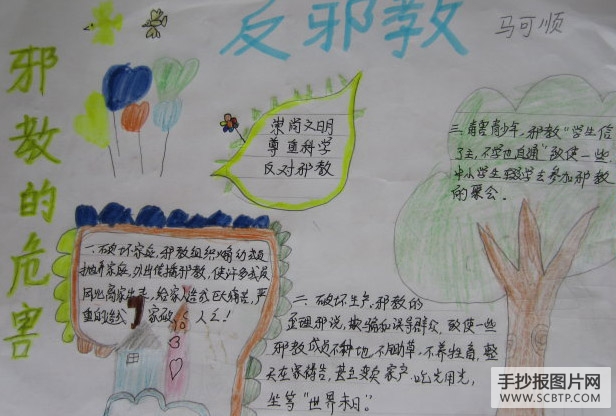 反邪教
马可顺
邪教的危害
崇尚文明
尊重科学
反对邪教
一、破坏家庭,邪教组织煽动成员
抛弃家庭,外出传播邪教,使许多成员
离家出走,给家人造成巨大痛苦,严
重的造成家破人亡!
二、破坏生产,邪教的
歪理邪说,欺骗和误导群众,致使一些
邪教成员不种地、不锄草、不养牲畜,整
天在家祷告,甚至变卖家产、吃光用光,
坐等“世界末日”。
三、毒害青少年,邪教“学生信
了主,不学也直通”致使一些
中小学生辍学去参加邪教
的聚会。
手抄报图片网
WWW.SCBTP.COM